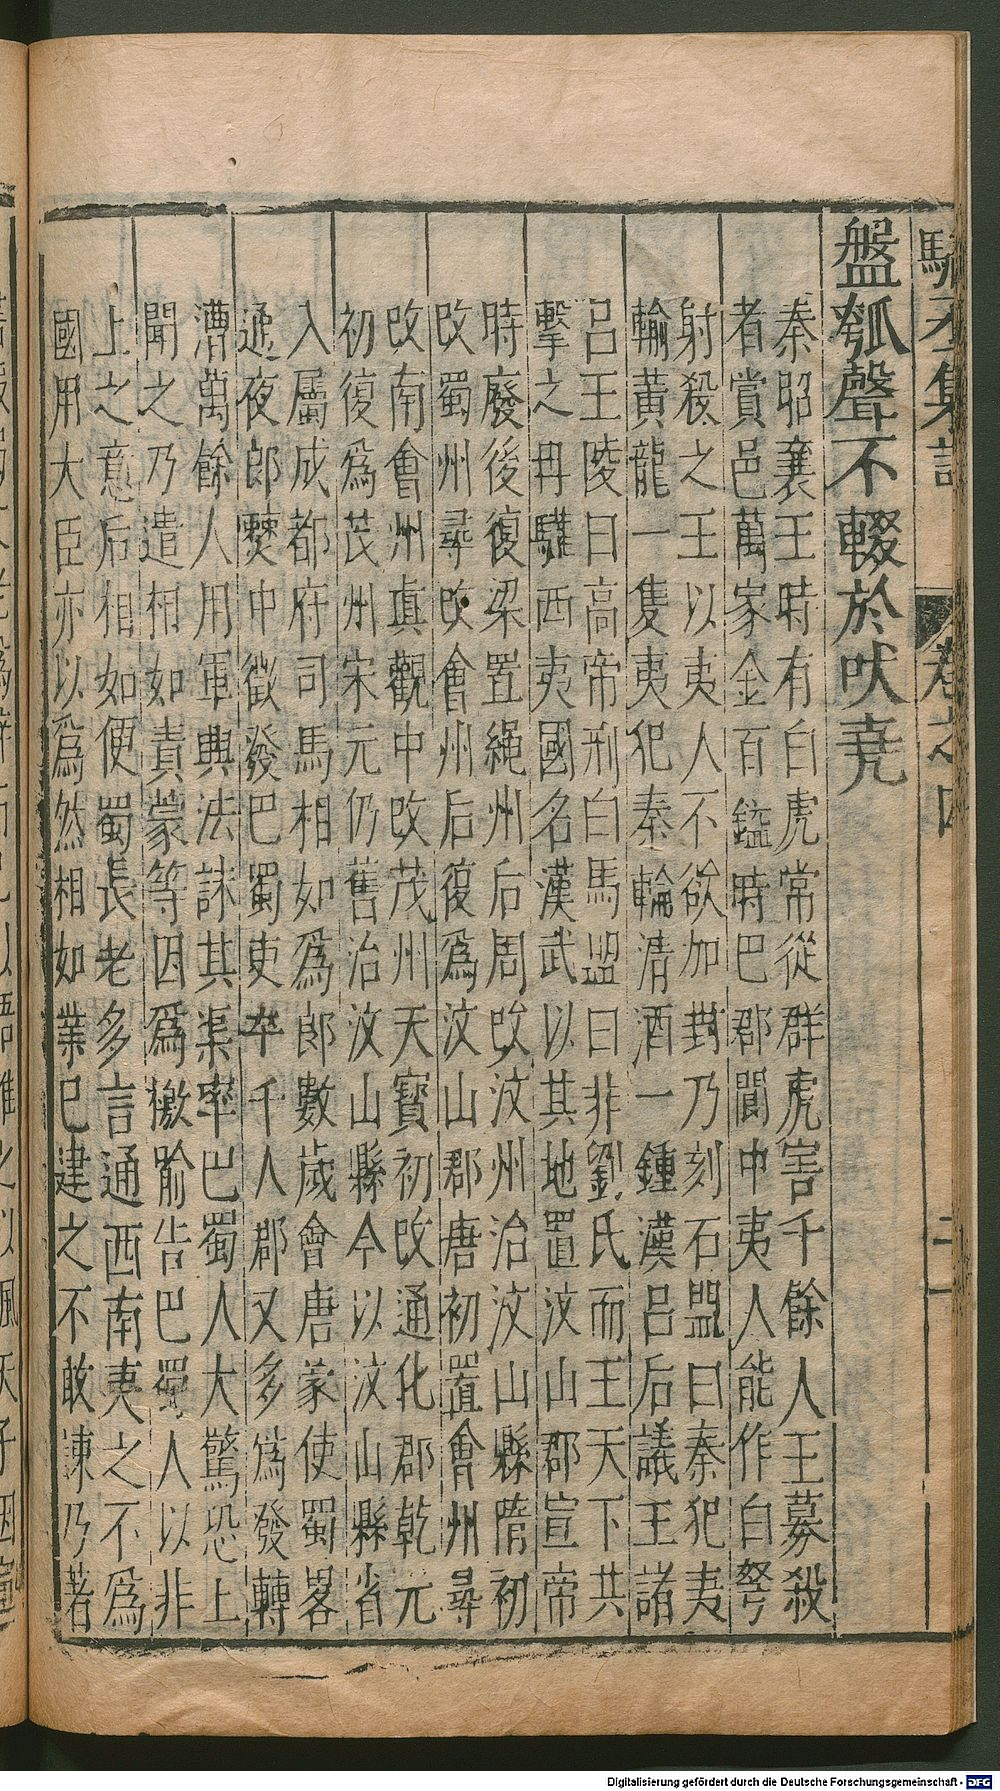 盤瓠聲不輟於吠堯
秦昭襄王時有白虎常從群虎害千餘人王募殺
者賞邑萬家金百鎰時巴郡閬中夷人能作白弩
射殺之王以夷人不欲加封乃刻石盟曰秦犯夷
輸黃龍一隻夷犯秦輸清酒一鍾漢呂后議王諸
呂王陵曰高帝刑白馬盟曰非劉氏而王天下共
擊之冉駹西夷國名漢武以其地置汶山郡宣帝
時廢後復梁置繩州后周改汶州治汶山縣隋初
改蜀州尋改會州后復為汶山郡唐初置會州尋
改南會州真觀中改茂州天寶初改通化郡乾元
初復為茂州宋元仍舊治汶山縣今以汶山縣省
入屬成都府司馬相如為郎數歲會唐蒙使蜀畧
通夜郎僰中徵發巴蜀吏卒千人郡又多為發轉
漕萬餘人用軍興法誅其渠率巴蜀人大驚恐上
聞之乃遣相如責蒙等因為檄喻告巴蜀人以非
上之意后相如便蜀長老多言通西南夷之不為
國用大臣亦以為然相如業巳建之不敢諫乃著
Digitalisierung gefördert durch die Deutsche Forschungsgemeinschaft - DFG